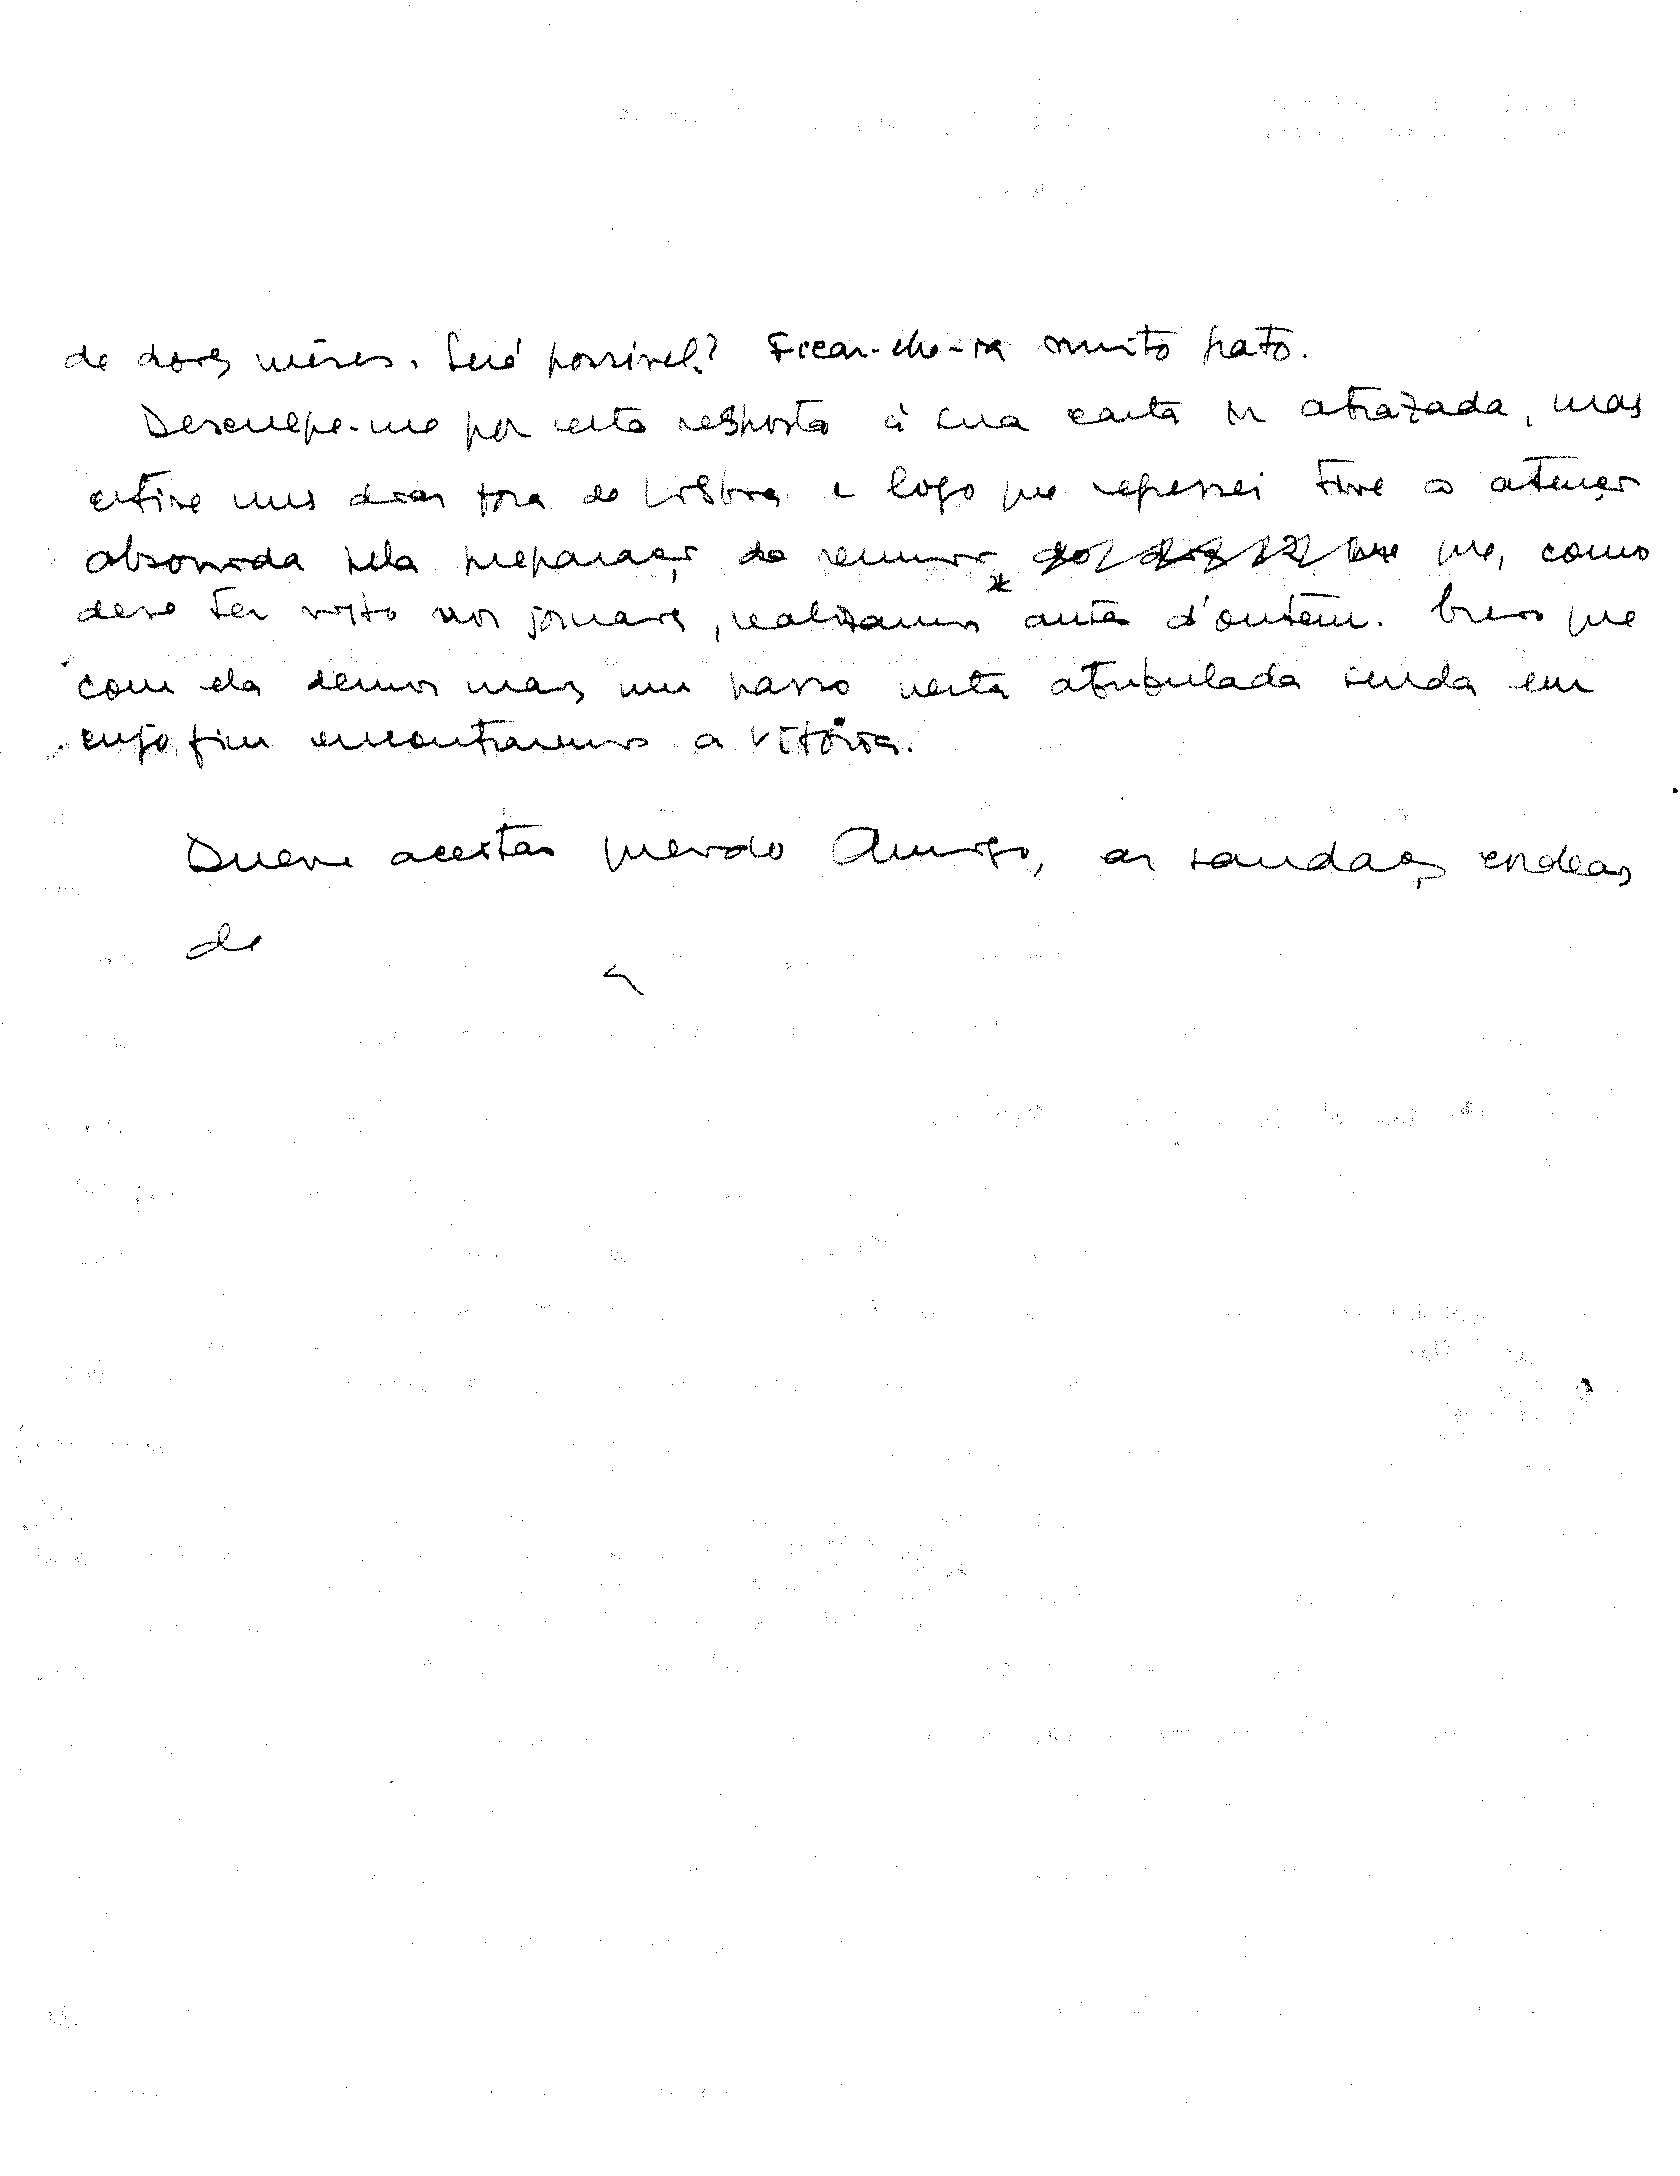 de dois mêses. Será possível? Ficar-lhe-ia muito grato.
Desculpe-me por esta resposta à sua carta ir atrazada, mas
estive uns dias fora de Lisboa e logo que regressei tive a atenção
absorvida pela preparação da reunião que, como
deve ter visto nos jornais, realizamos antes d'ontem. Creio que
com ela demos mais um passo nesta atribulada senda em
cujo fim encontraremos a vitória.
Queira aceitar querido Amigo, as saudações cordeais
de